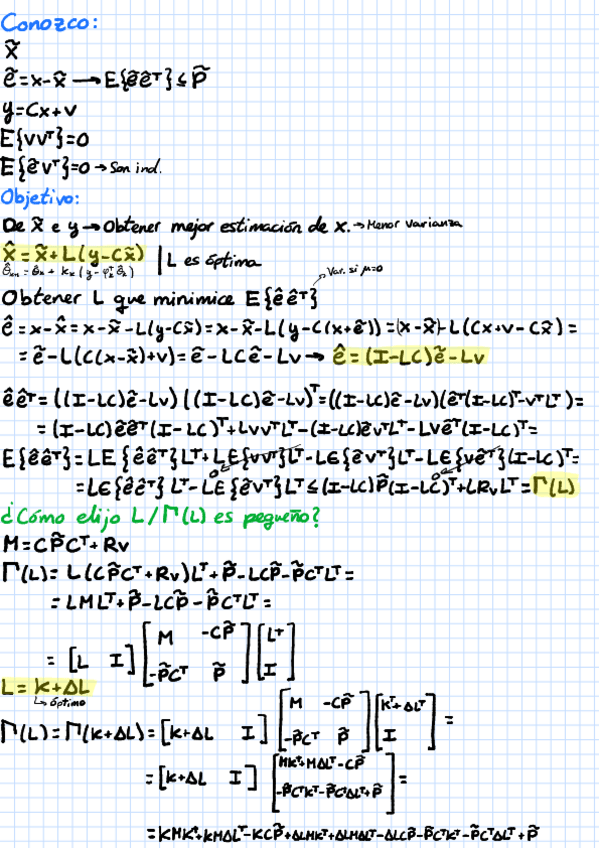 Conozco:
x̃
ẽ=x-x̃ → E{ẽẽᵀ}≤P̃
y=Cx+v
E{vvᵀ}=0
E{ẽvᵀ}=0 → Son ind.
Objetivo:
De x̃ e y → Obtener mejor estimación de x. → Menor varianza
x̂=x̃+L(y-Cx̃) | L es óptima
Obtener L que minimice E{êêᵀ} → Var. si μ=0
ê=x-x̂=x-x̃-L(y-Cx̃)=x-x̃-L(y-C(x+ẽ))=(x-x̃)-L(Cx+v-Cx̃)=
=ẽ-L(C(x-x̃)+v)=ẽ-LCẽ-Lv → ê=(I-LC)ẽ-Lv
êêᵀ=((I-LC)ẽ-Lv)((I-LC)ẽ-Lv)ᵀ=((I-LC)ẽ-Lv)(ẽᵀ(I-LC)ᵀ-vᵀLᵀ)=
=(I-LC)ẽẽᵀ(I-LC)ᵀ+LvvᵀLᵀ-(I-LC)ẽvᵀLᵀ-Lvẽᵀ(I-LC)ᵀ=
E{êêᵀ}=LE{ẽẽᵀ}Lᵀ+LE{vvᵀ}Lᵀ-LE{ẽvᵀ}Lᵀ-LE{vẽᵀ}(I-LC)ᵀ=
=LE{ẽẽᵀ}Lᵀ-LE{ẽvᵀ}Lᵀ≤(I-LC)P̃(I-LC)ᵀ+LRvLᵀ=Γ(L)
¿Cómo elijo L/Γ(L) es pequeño?
M=CP̃Cᵀ+Rv
Γ(L)=L(CP̃Cᵀ+Rv)Lᵀ+P̃-LCP̃-P̃CᵀLᵀ=
=LMLᵀ+P̃-LCP̃-P̃CᵀLᵀ=
=[L I][M -CP̃ -P̃Cᵀ P̃][Lᵀ I]
L=K+ΔL
↳ óptimo
Γ(L)=Γ(K+ΔL)=[K+ΔL I][M -CP̃ -P̃Cᵀ P̃][Kᵀ+ΔLᵀ I]=
=[K+ΔL I][MKᵀ+MΔLᵀ-CP̃ -P̃CᵀKᵀ-P̃CᵀΔLᵀ+P̃]=
=KMKᵀ+KMΔLᵀ-KCP̃+ΔLMKᵀ+ΔLMΔLᵀ-ΔLCP̃-P̃CᵀKᵀ-P̃CᵀΔLᵀ+P̃